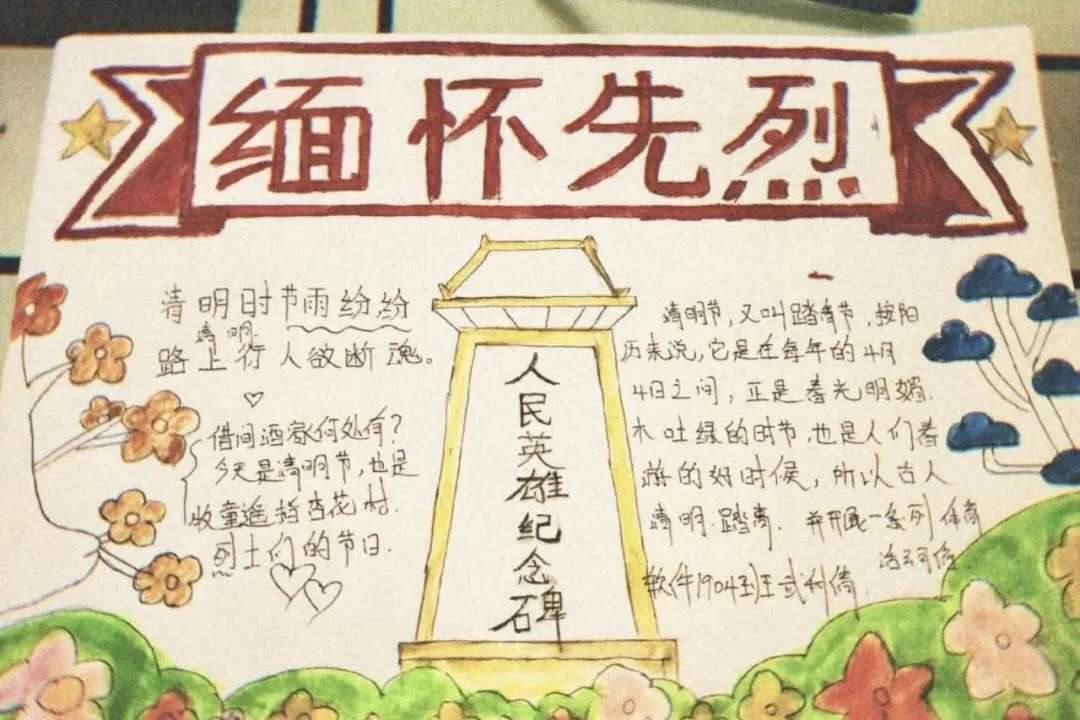 缅怀先烈
清明时节雨纷纷
清明
路上行人欲断魂。
借问酒家何处有?
今天是清明节,也是
牧童遥指杏花村.
烈士们的节日.
人民英雄纪念碑
清明节,又叫踏青节,按阳
历来说,它是在每年的4月
4日之间,正是春光明媚.
木吐绿的时节,也是人们春
游的好时候,所以古人
清明.踏青.并开展一系列体育
活动
软件1904班王